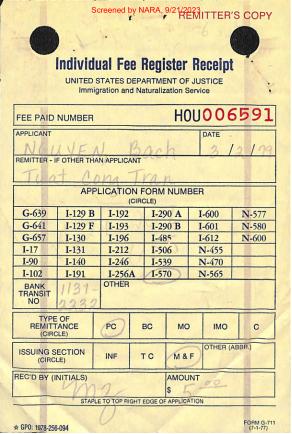 Screened by NARA, 9/21/2023
REMITTER'S COPY
Individual Fee Register Receipt
UNITED STATES DEPARTMENT OF JUSTICE
Immigration and Naturalization Service
FEE PAID NUMBER HOU006591
APPLICANT DATE
NGUYEN Bach 3/2/79
REMITTER - IF OTHER THAN APPLICANT
Tuat Cong Tran
APPLICATION FORM NUMBER
(CIRCLE)
G-639 I-129 B I-192 I-290 A I-600 N-577
G-641 I-129 F I-193 I-290 B I-601 N-580
G-657 I-130 I-196 I-485 I-612 N-600
I-17 I-131 I-212 I-506 N-455
I-90 I-140 I-246 I-539 N-470
I-102 I-191 I-256A I-570 N-565
BANK TRANSIT NO 1131-2232 OTHER
TYPE OF REMITTANCE (CIRCLE) PC BC MO IMO C
ISSUING SECTION (CIRCLE) INF T C M & F OTHER (ABBR.)
REC'D BY (INITIALS) AMOUNT
$ 5.00
STAPLE TO TOP RIGHT EDGE OF APPLICATION
☆ GPO: 1978-256-094
FORM G-711
(7-1-77)